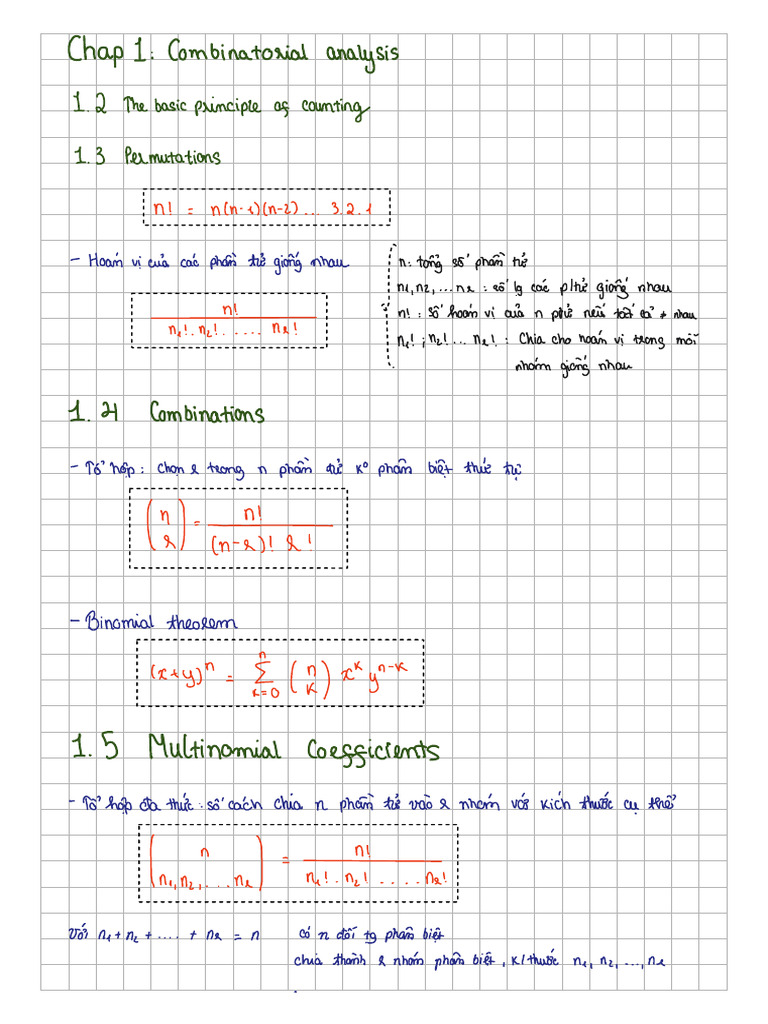 Chap 1: Combinatorial analysis
1.2 The basic principle of counting
1.3 Permutations
n! = n(n-1)(n-2) ... 3.2.1
- Hoán vị của các phần tử giống nhau
n!
n₁!.n₂!. .... nr!
n: tổng số phần tử
n₁,n₂,...nr : số lg các p/tử giống nhau
n! : số hoán vị của n p/tử nếu tất cả ≠ nhau
n₁! ; n₂! ... nr! : Chia cho hoán vị trong mỗi
nhóm giống nhau
1.4 Combinations
- Tổ hợp : chọn r trong n phần tử k° phân biệt thứ tự
(n r) = n! / (n-r)! r!
- Binomial theorem
(x+y)ⁿ = Σ k=0 n (n k) xᵏ yⁿ⁻ᵏ
1.5 Multinomial Coefficients
- Tổ hợp đa thức : số cách chia n phần tử vào r nhóm với kích thước cụ thể
(n n₁,n₂,...nr) = n! / n₁!.n₂! .... nr!
Với n₁+n₂+....+nr = n có n đối tg phân biệt
chia thành r nhóm phân biệt, k/thước n₁, n₂, ..., nr